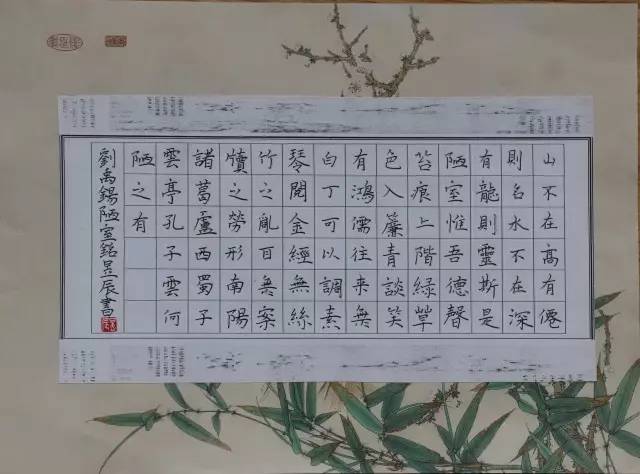 山不在高有僊
則名水不在深
有龍則靈斯是
陋室惟吾德馨
苔痕上階綠草
色入簾青談笑
有鴻儒往來無
白丁可以調素
琴閱金經無絲
竹之亂耳無案
牘之勞形南陽
諸葛廬西蜀子
雲亭孔子雲何
陋之有
劉禹錫陋室銘昱辰書